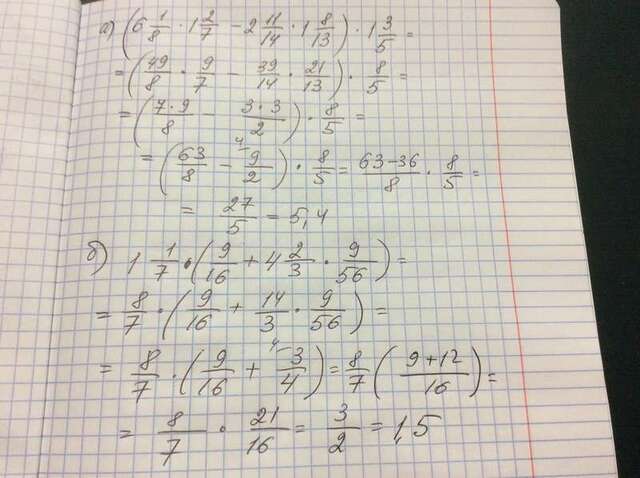 а) (6 1/8 · 1 2/7 − 2 11/14 · 1 8/13) · 1 3/5 =
= (49/8 · 9/7 − 39/14 · 21/13) · 8/5 =
= (7·9/8 − 3·3/2) · 8/5 =
= (63/8 − 4⌣9/2) · 8/5 = 63−36/8 · 8/5 =
= 27/5 = 5,4
б) 1 1/7 · (9/16 + 4 2/3 · 9/56) =
= 8/7 · (9/16 + 14/3 · 9/56) =
= 8/7 · (9/16 + 4⌣3/4) = 8/7 (9+12/16) =
= 8/7 · 21/16 = 3/2 = 1,5